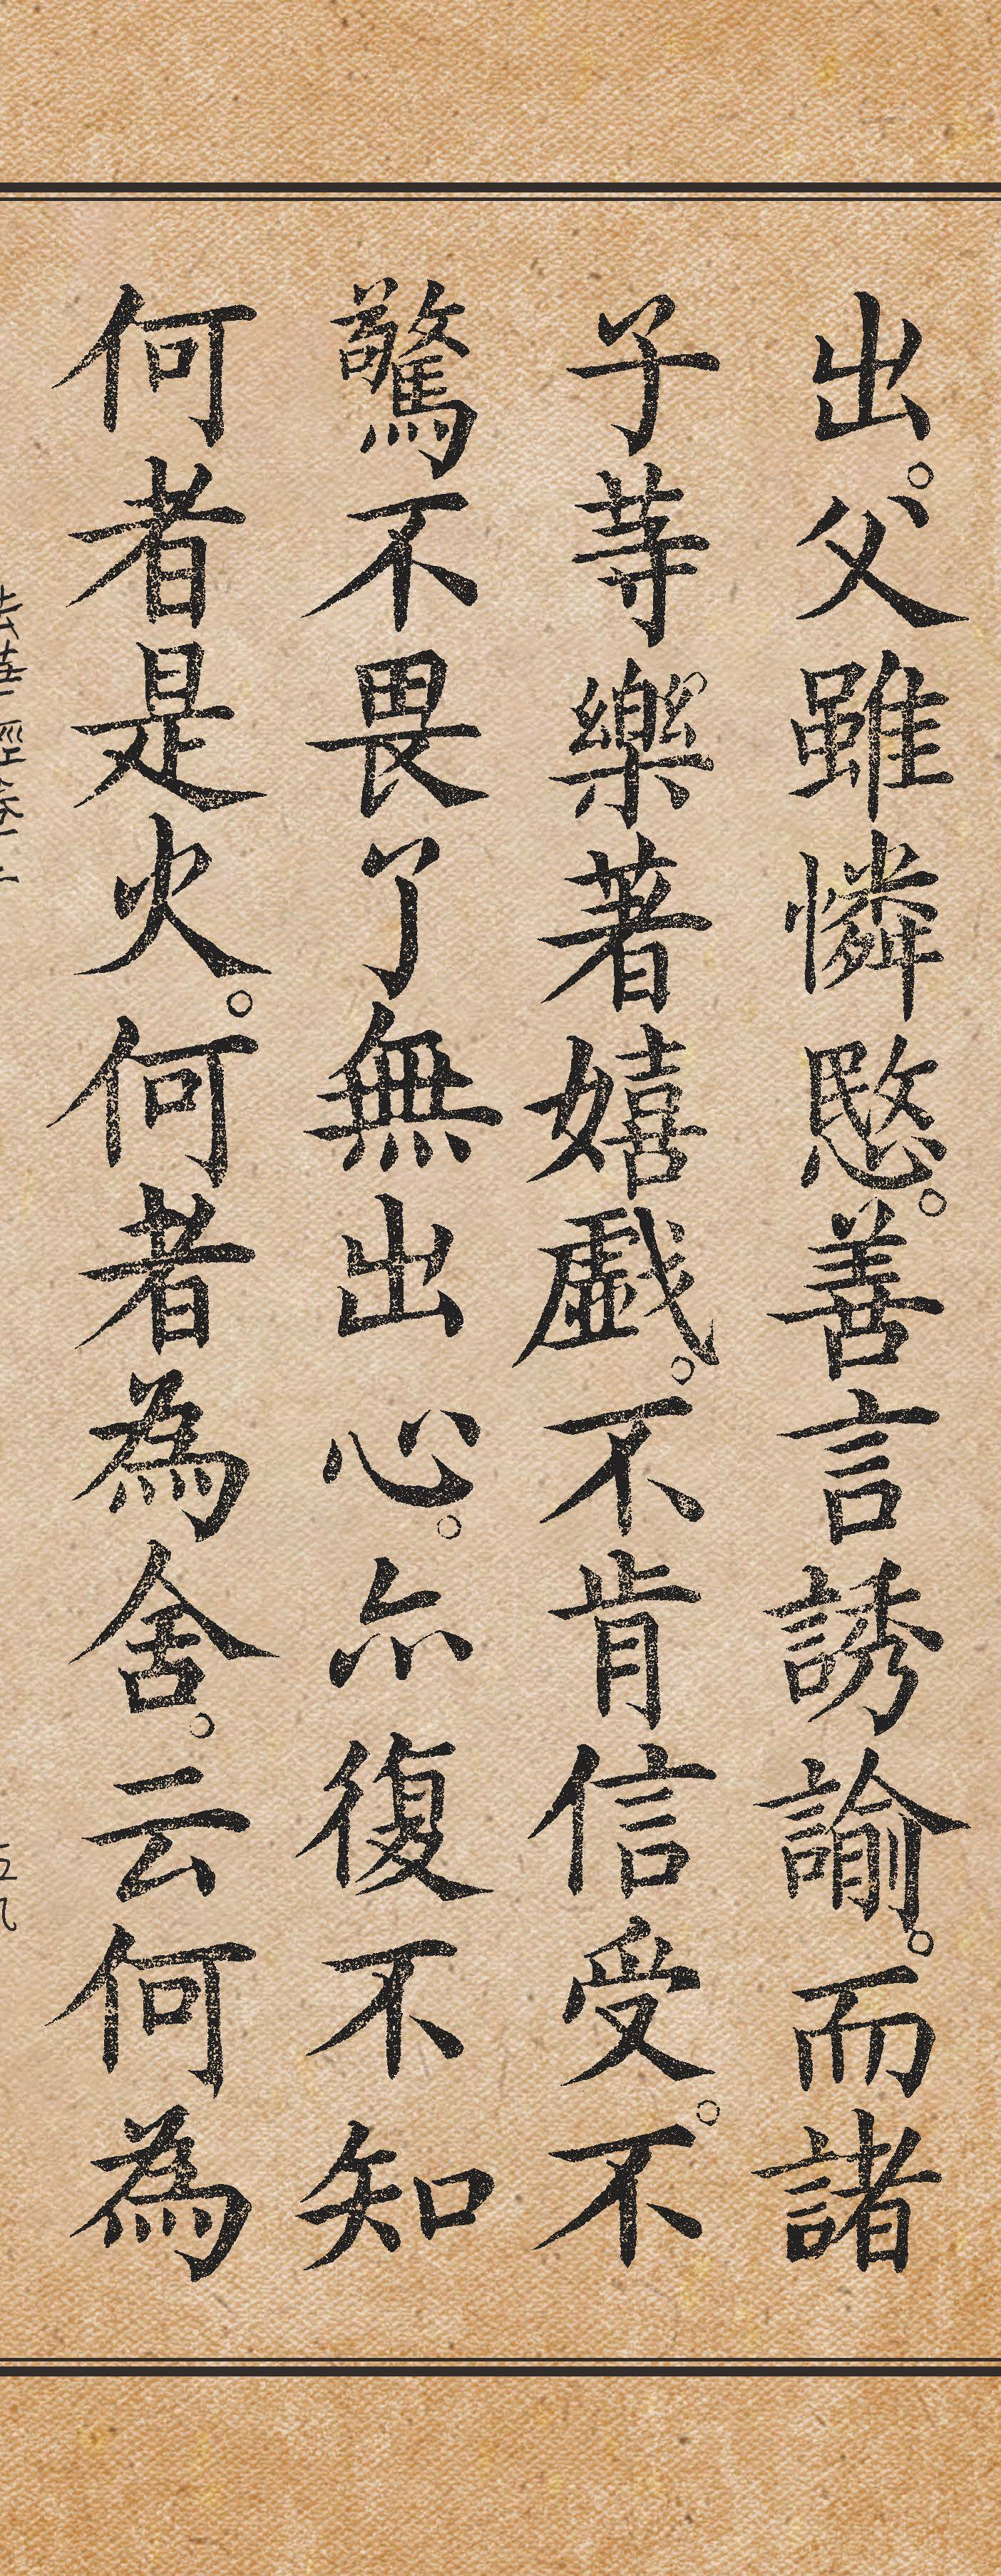 出。父雖憐愍。善言誘諭。而諸
子䓁樂著嬉戲。不肯信受。不
驚不畏了無出心。亦復不知
何者是火。何者為舍。云何為